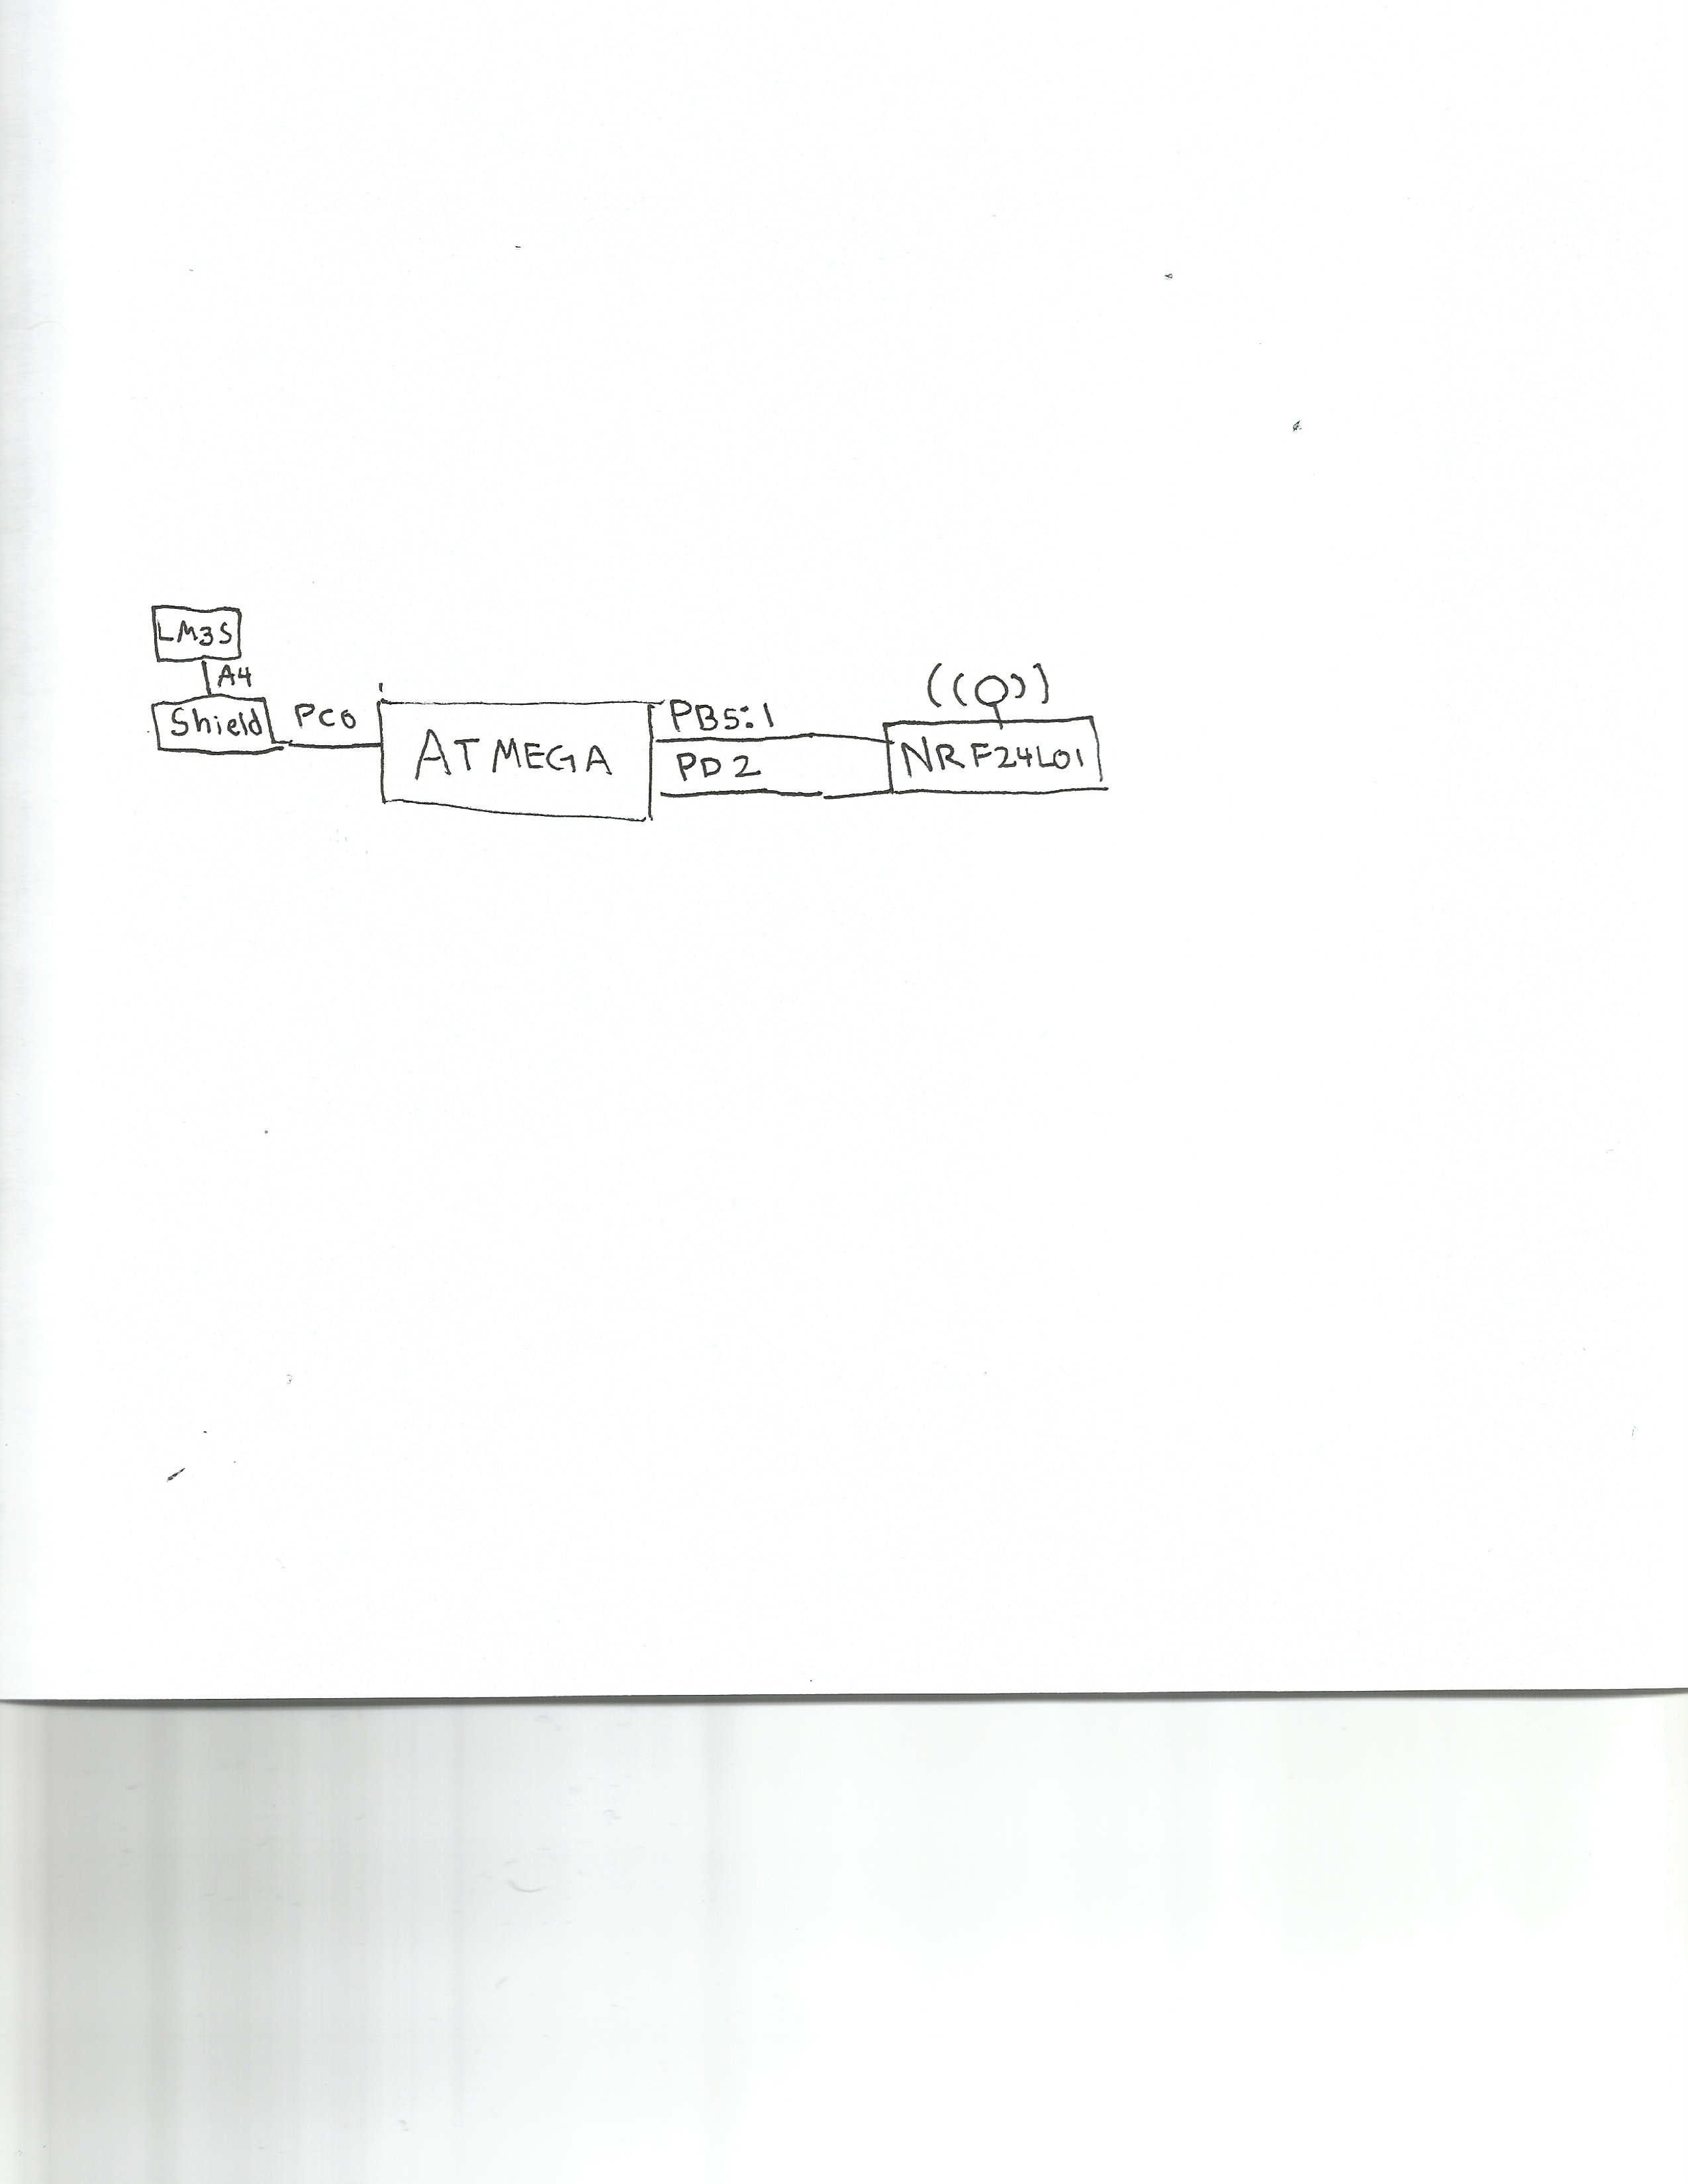 LM3S
A4
Shield
PC0
ATMEGA
PB5:1
PD2
NRF24L01